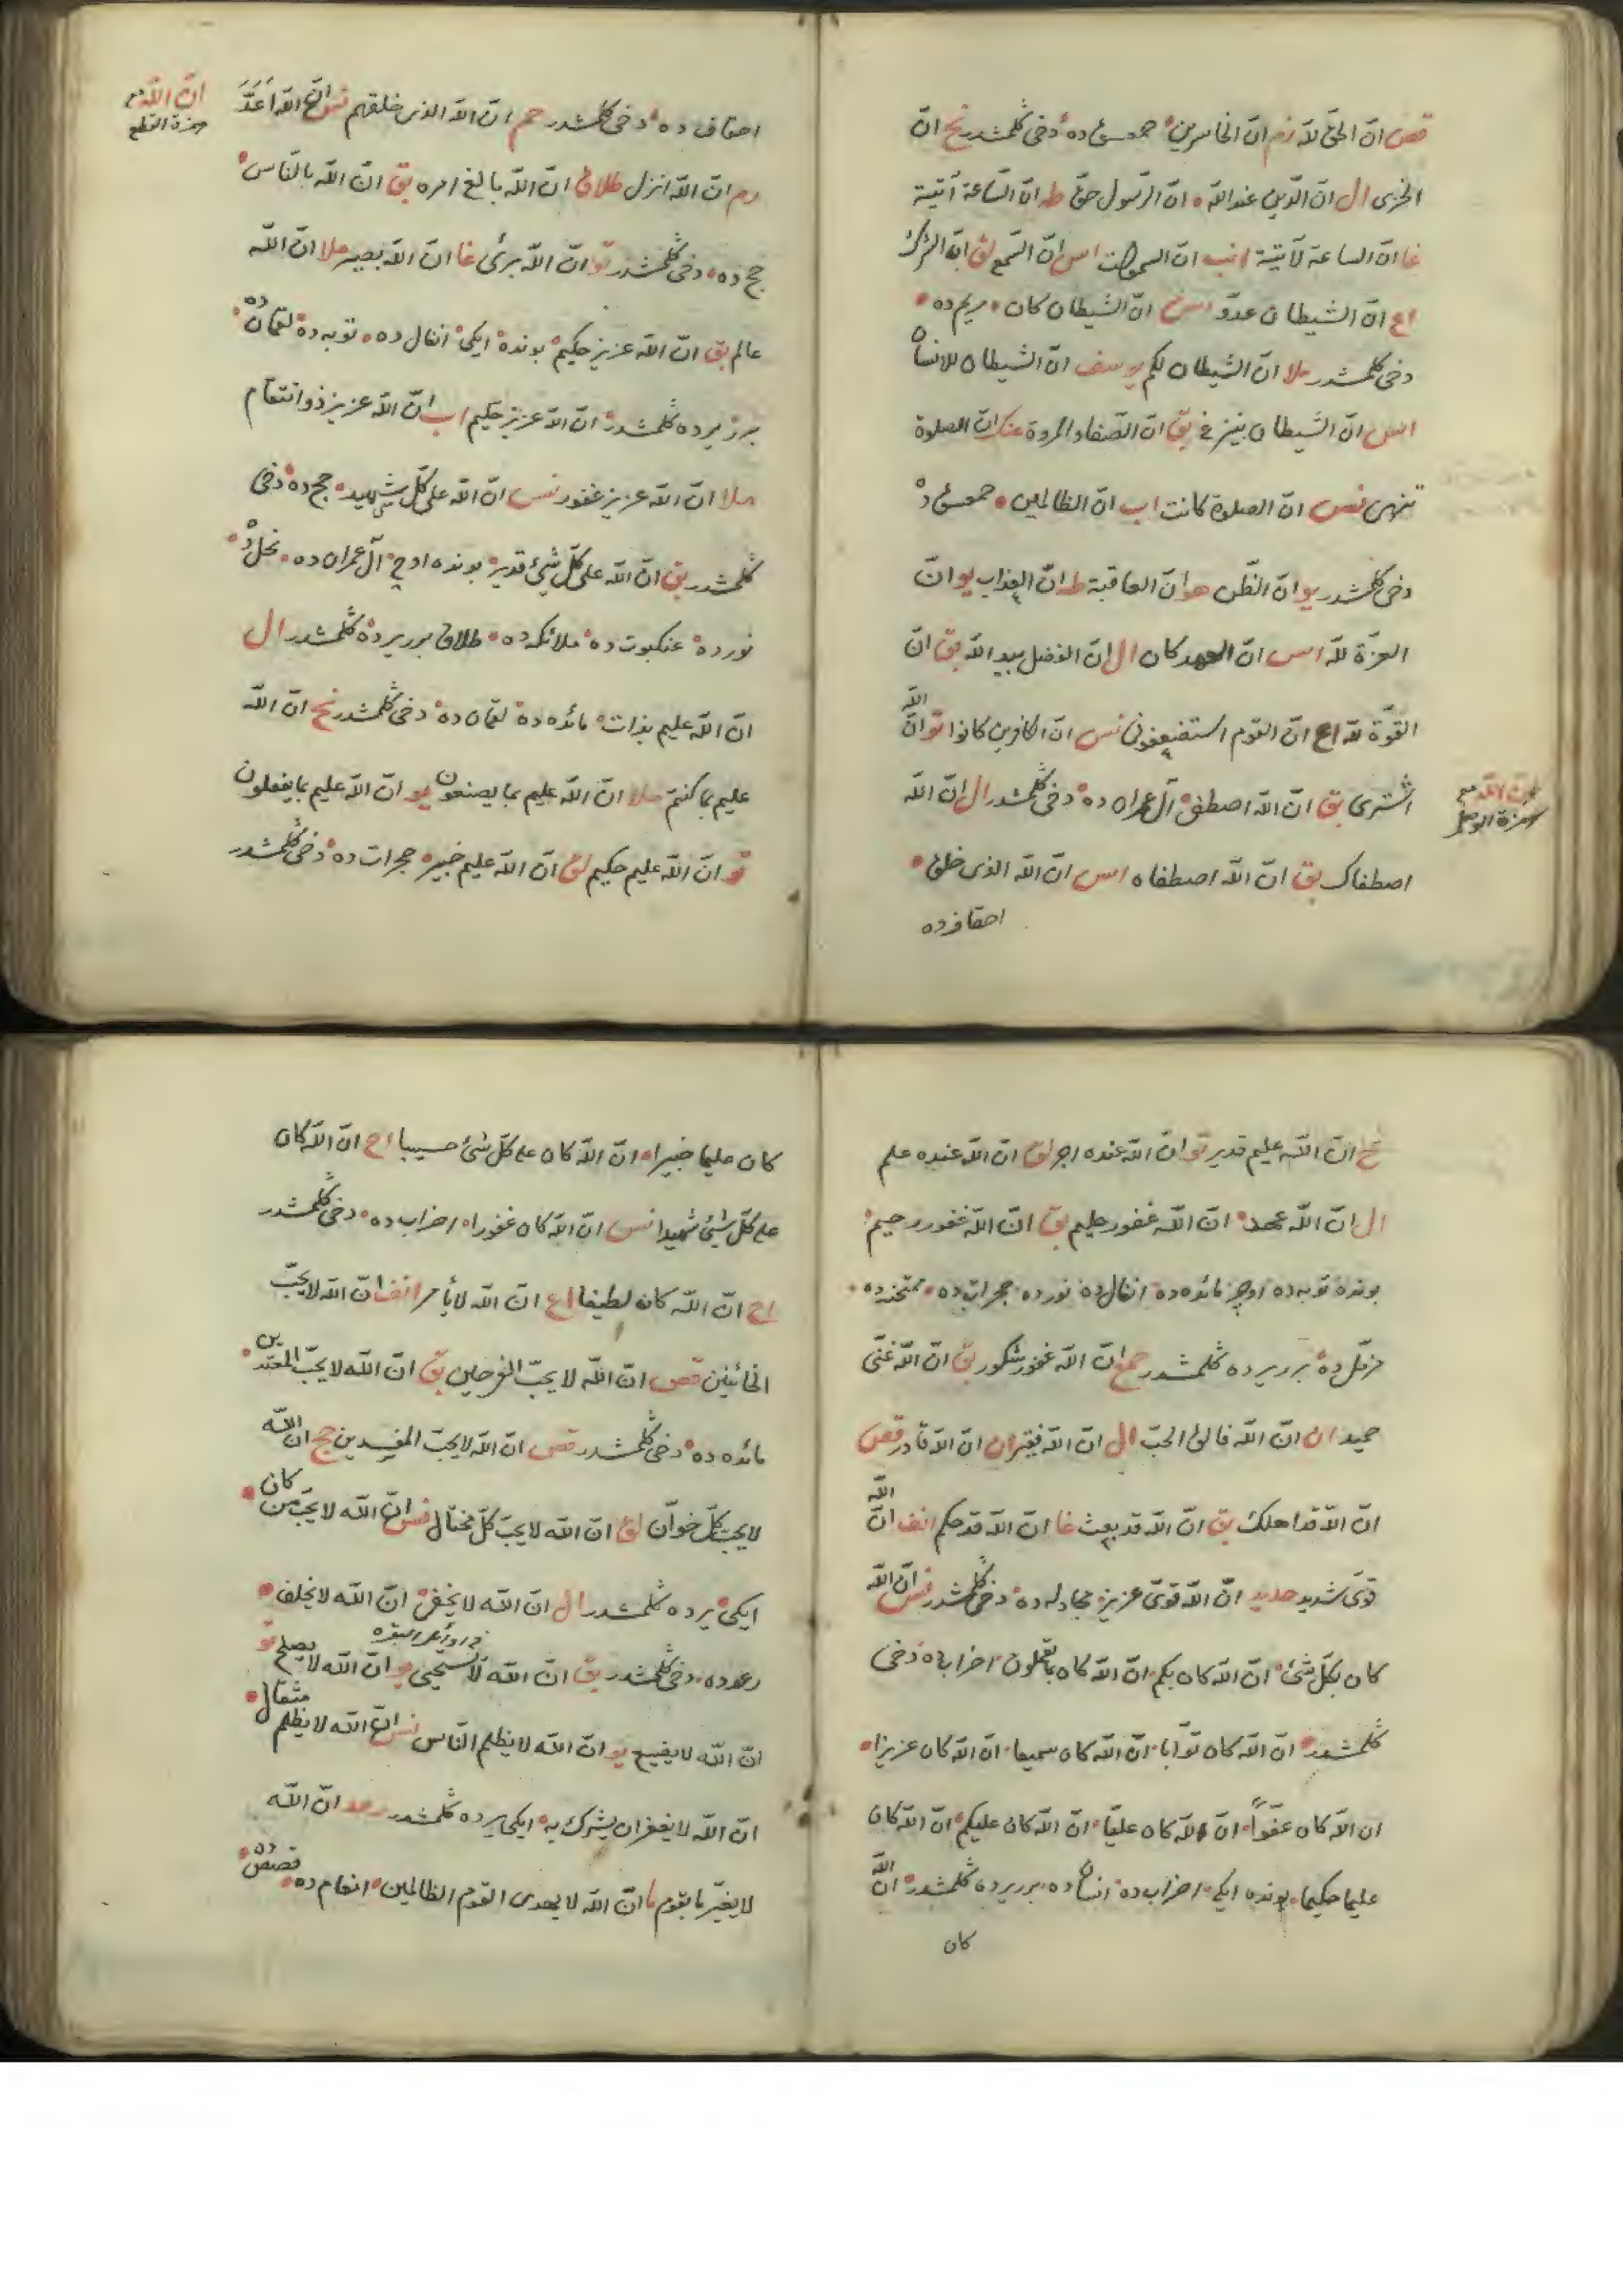 قص ان الحق لله زم ان الخاسرين حمعسق ده دخی كلمشدر نح ان
الخزى ال ان الدين عند الله ان الرسول حق طه ان الساعة آتية
غا ان الساعة لآتية انب ان السموات اس ان السمع لق ان الشرك
اع ان الشيطان عدو اس ان الشيطان كان مريم ده
دخی كلمشدر ملا ان الشيطان لكم يوسف ان الشيطان للانسان
اس ان الشيطان ينزغ بق ان الصفا والمروة عنك ان الصلوة
تنهى نس ان الصلوة كانت اب ان الظالمين حمعسق ده
دخی كلمشدر يو ان الظن هو ان العاقبة طه ان العذاب يو ان
العزة لله اس ان العهد كان ال ان الفضل بيد الله بق ان
القوة لله اع ان القوم استضعفونى نس ان الكافرين كانوا تو ان الله
اشترى بق ان الله اصطفى آل عمران ده دخی كلمشدر ال ان الله
ان الله مع
همزة الوصل
اصطفاك بق ان الله اصطفاه اس ان الله الذى خلق
احقافده
ان الله مع
همزة القطع
احقاف ده دخی كلمشدر حم ان الله الذى خلقهم نس ان الله اعد
رم ان الله انزل طلاق ان الله بالغ امره بق ان الله بالناس
حج ده دخی كلمشدر تو ان الله برئ غا ان الله بصير ملا ان الله
عالم بق ان الله عزيز حكيم بونده ايكى انفال ده توبه ده لقمان ده
برر يرده كلمشدر ان الله عزيز حكيم اب ان الله عزيز ذو انتقام
ملا ان الله عزيز غفور نس ان الله على كل شهيد حج ده دخی
كلمشدر بق ان الله على كل شئ قدير بونده اوچ آل عمران ده نحل ده
نور ده عنكبوت ده ملائكه ده طلاق برر يرده كلمشدر ال
ان الله عليم بذات مائده ده لقمان ده دخی كلمشدر نح ان الله
عليم بما كنتم ملا ان الله عليم بما يصنعون يو ان الله عليم بما يفعلون
تو ان الله عليم حكيم لق ان الله عليم خبير حجرات ده دخی كلمشدر
نح ان الله عليم قدير تو ان الله عنده اجر لق ان الله عنده علم
ال ان الله عهد ان الله غفور حليم بق ان الله غفور رحيم
بونده توبه ده اوچر مائده ده انفال ده نور ده حجرات ده ممتحنه ده
مزمل ده برر يرده كلمشدر حمع ان الله غفور شكور بق ان الله غنى
حميد ان ان الله فالق الحب ال ان الله فقير ان ان الله قادر قص
ان الله قد اهلك بق ان الله قد بعث غا ان الله قد حكم انف ان الله
قوى شديد حديد ان الله قوى عزيز مجادله ده دخی كلمشدر نس ان الله
كان بكل شئ ان الله كان بكم ان الله كان بما تعملون احزاب ده دخی
كلمشدر ان الله كان توابا ان الله كان سميعا ان الله كان عزيزا
ان الله كان عفوا ان الله كان عليا ان الله كان عليكم ان الله كان
عليما حكيما بونده ايكى احزاب ده انسان ده برر يرده كلمشدر ان الله
كان
كان عليما خبيرا ان الله كان على كل شئ حسيبا اح ان الله كان
على كل شئ شهيدا نس ان الله كان غفورا احزاب ده دخی كلمشدر
اح ان الله كان لطيفا اع ان الله لا يأمر انف ان الله لا يحب
الخائنين قص ان الله لا يحب الفرحين بق ان الله لا يحب المعتدين
مائده ده دخی كلمشدر قص ان الله لا يحب المفسدين حج ان الله
لا يحب كل خوان لق ان الله لا يحب كل مختال نس ان الله لا يحب من كان
ايكى يرده كلمشدر ال ان الله لا يخفى ان الله لا يخلف
رعد ده دخی كلمشدر بق ان الله لا يستحيى يو ان الله لا يصلح تو
ان الله لا يضيع يو ان الله لا يظلم الناس نس ان الله لا يظلم مثقال
ان الله لا يغفر ان يشرك به ايكى يرده كلمشدر رعد ان الله
لا يغير ما بقوم ما ان الله لا يهدى القوم الظالمين انعام ده قصص ده